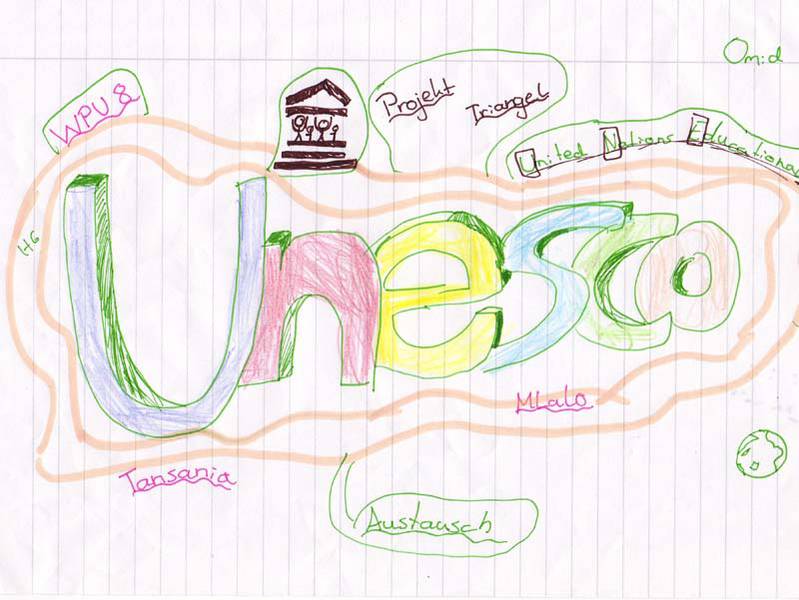 Omid
WPU 8
Projekt
Triangel
United Nations Educational
HG
Unesco
MLalo
Tansania
Austausch